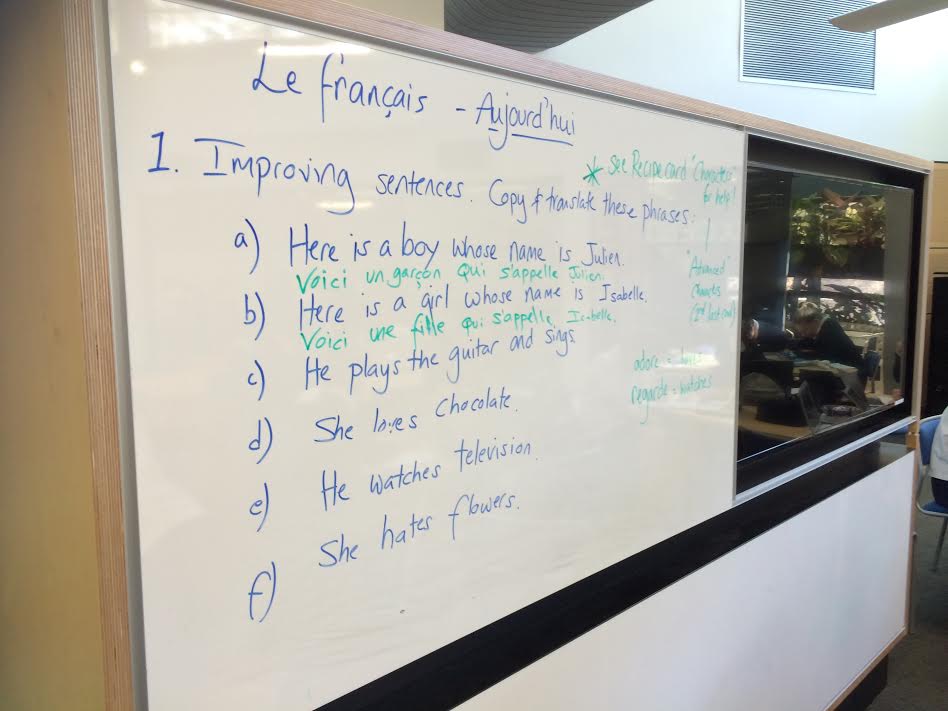 Le français - Aujourd'hui
1. Improving sentences. Copy & translate these phrases:
* See Recipe card "Character"
for help!
a) Here is a boy whose name is Julien.
Voici un garçon qui s'appelle Julien.
b) Here is a girl whose name is Isabelle.
Voici une fille qui s'appelle Isabelle.
c) He plays the guitar and sings.
d) She loves chocolate.
e) He watches television.
f) She hates flowers.
"Advanced"
(2nd last card)
adore = loves
regarde = watches